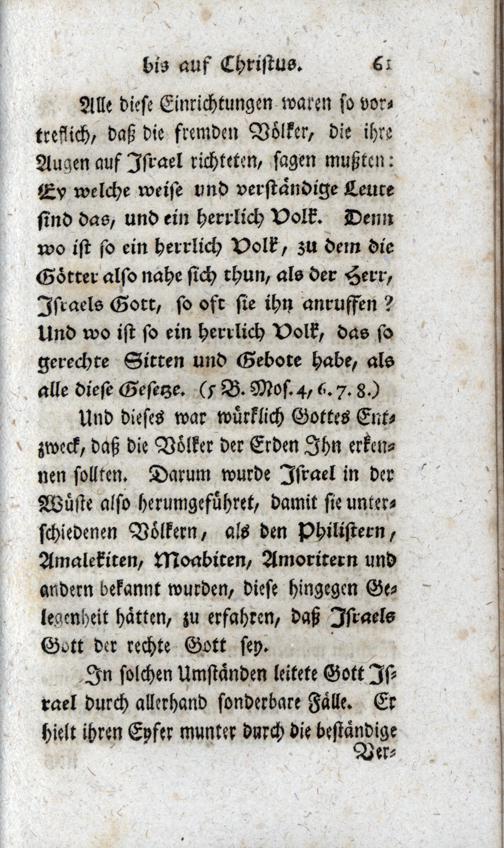 bis auf Christus. 61
Alle diese Einrichtungen waren so vor-
treflich, daß die fremden Völker, die ihre
Augen auf Israel richteten, sagen mußten:
Ey welche weise und verständige Leute
sind das, und ein herrlich Volk. Denn
wo ist so ein herrlich Volk, zu dem die
Götter also nahe sich thun, als der Herr,
Israels Gott, so oft sie ihn anruffen?
Und wo ist so ein herrlich Volk, das so
gerechte Sitten und Gebote habe, als
alle diese Gesetze. (5 B. Mos. 4, 6. 7. 8.)
Und dieses war würklich Gottes Ent-
zweck, daß die Völker der Erden Ihn erken-
nen sollten. Darum wurde Israel in der
Wüste also herumgeführet, damit sie unter-
schiedenen Völkern, als den Philistern,
Amalekiten, Moabiten, Amoritern und
andern bekannt wurden, diese hingegen Ge-
legenheit hätten, zu erfahren, daß Israels
Gott der rechte Gott sey.
In solchen Umständen leitete Gott Is-
rael durch allerhand sonderbare Fälle. Er
hielt ihren Eyfer munter durch die beständige
Ver-